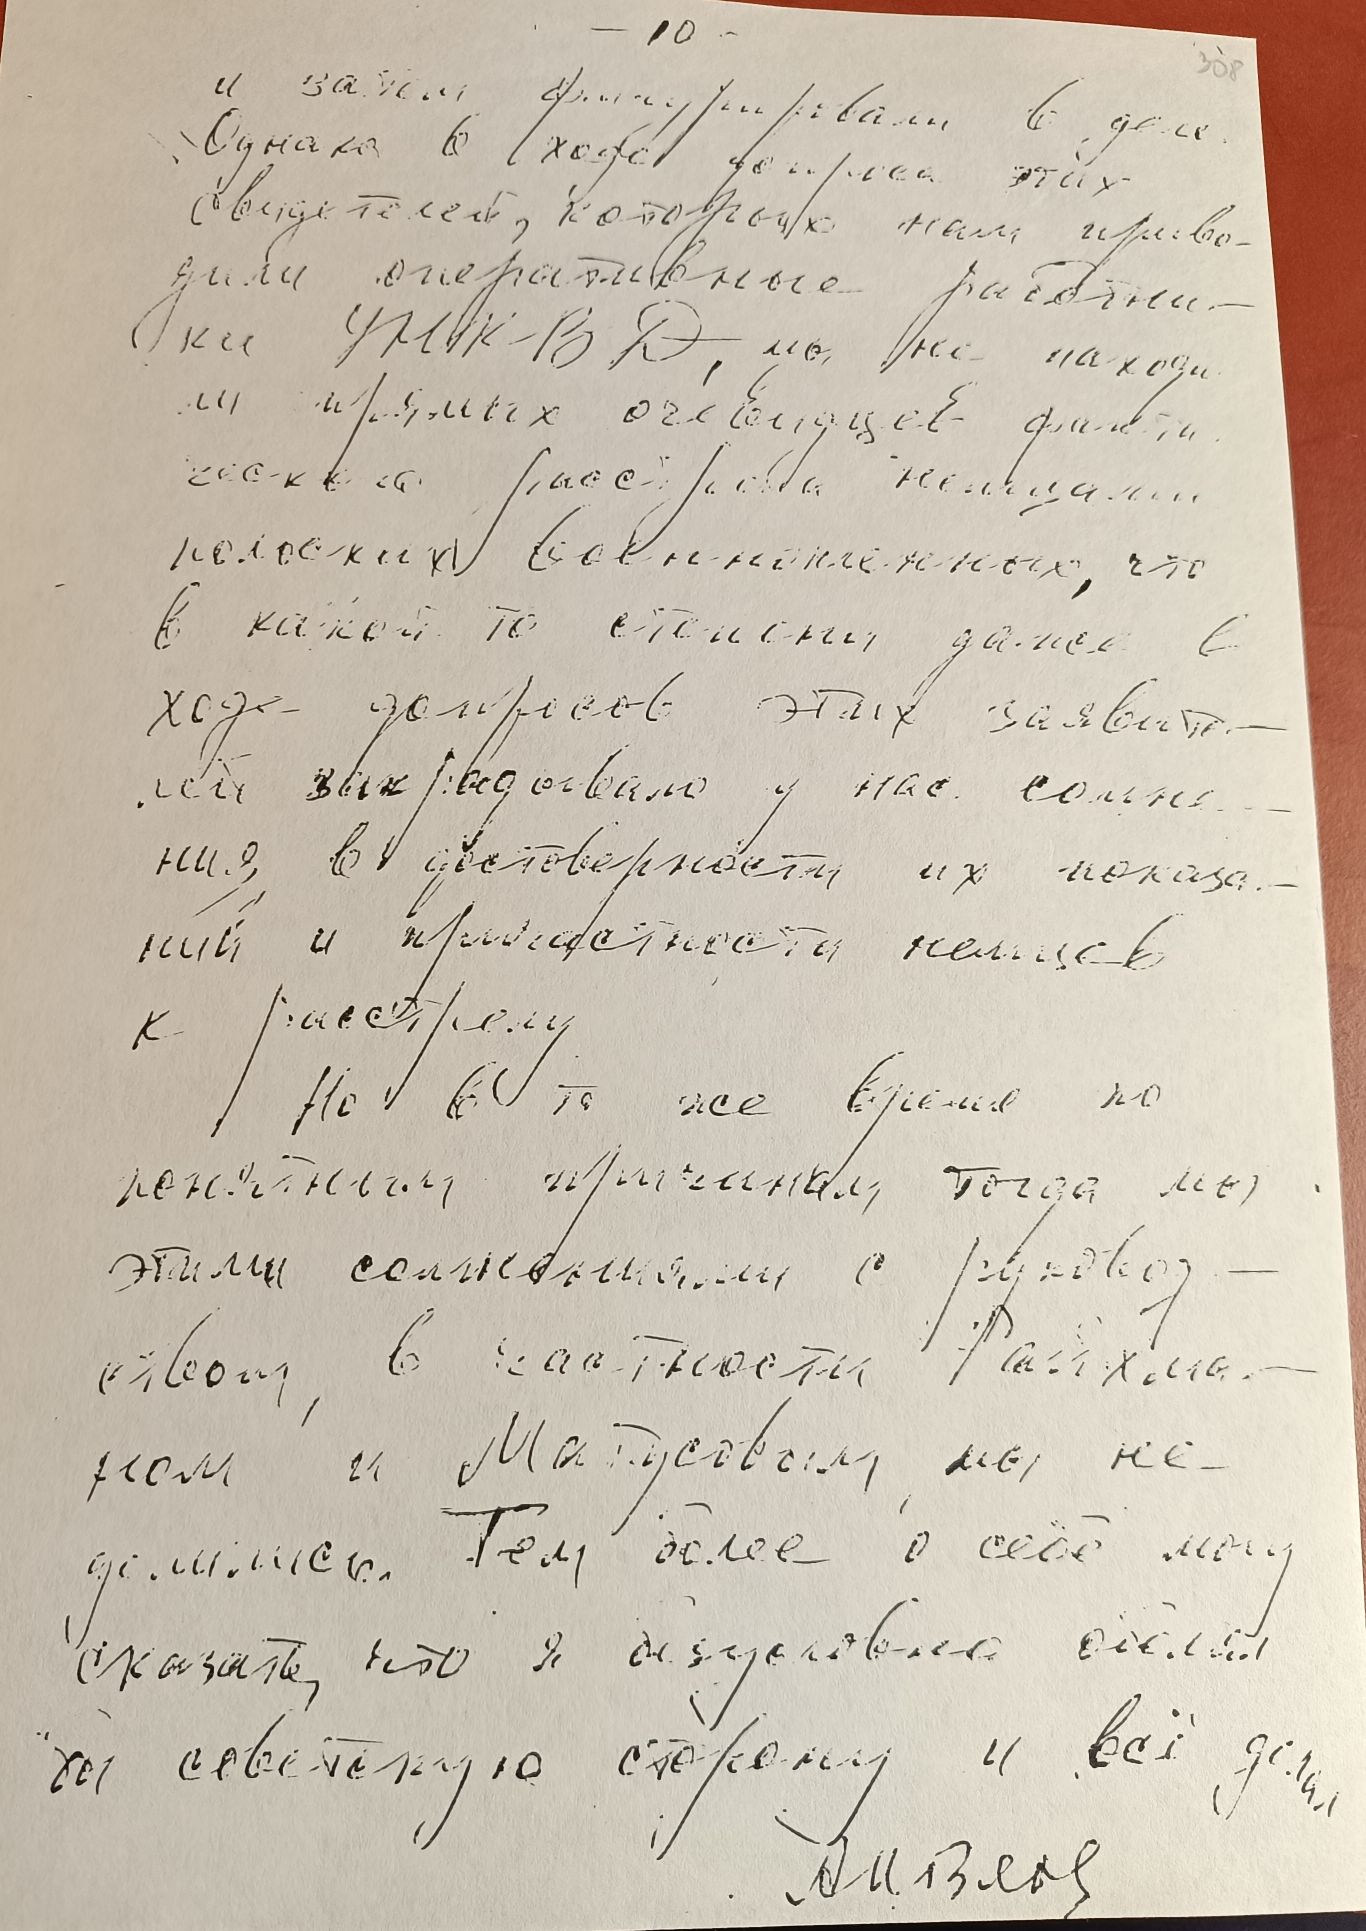 - 10 -
308
и затем фигурировали в деле.
Однако в ходе допроса этих
свидетелей, которых нам приво-
дили оперативные работни-
ки УНКВД, мы не находи
ли прямых очевидцев факти
ческого расстрела немцами
польских военнопленных, что
в какой то степени даже в
ходе допросов этих заявите-
лей закрадывало у нас сомне-
ния в достоверности их показа-
ний и причастности немцев
к расстрелу
Но в то же время по
понятным причинам тогда мы
этими сомнениями с руковод-
ством, в частности Райхма-
ном и Матусовым, мы не
делились. Тем более о себе могу
сказать, что я безусловно стоял
за советскую сторону и всё делал